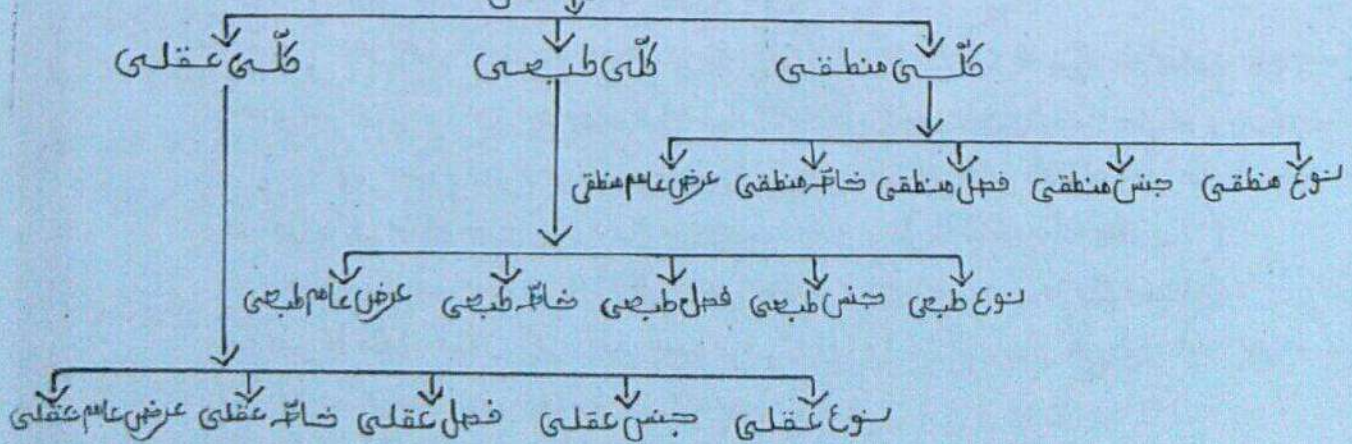 کلّی منطقی کلّی طبعی کلّی عقلی
نوع منطقی جنس منطقی فصل منطقی خاصّہ منطقی عرض عام منطقی
نوع طبعی جنس طبعی فصل طبعی خاصّہ طبعی عرض عام طبعی
نوع عقلی جنس عقلی فصل عقلی خاصّہ عقلی عرض عام عقلی